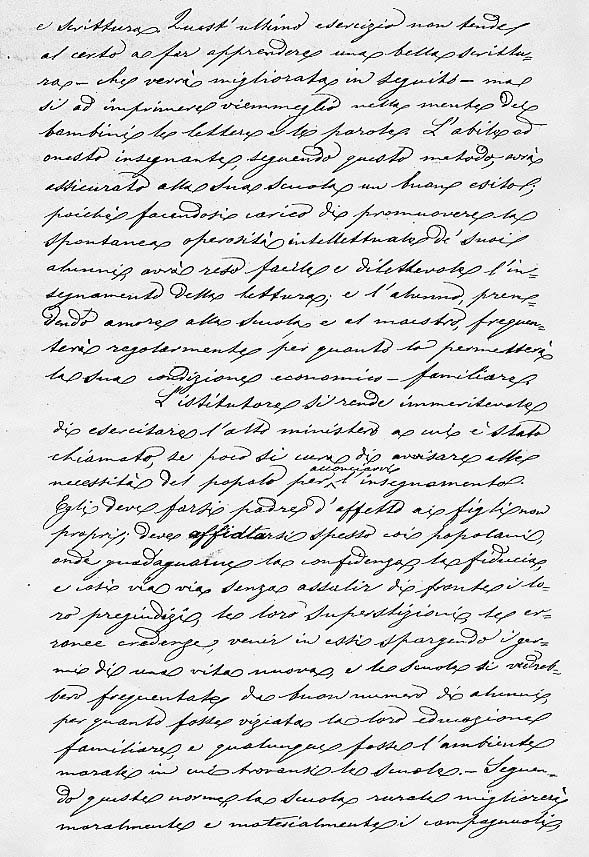 e scrittura. Quest'ultimo esercizio non tende
al certo a far apprendere una bella scrittu-
ra - che verrà migliorata in seguito - ma
si ad imprimere viemmeglio nella mente dei
bambini le lettere e le parole. L'abile ed
onesto insegnante, seguendo questo metodo, avrà
assicurato alla sua scuola un buon esito;
poichè facendosi carico di promuovere la
spontanea operosità intellettuale de' suoi
alunni, avrà reso facile e dilettevole l'in-
segnamento della lettura; e l'alunno, pren-
dendo amore alla scuola e al maestro, frequen-
terà regolarmente per quanto lo permetterà
la sua condizione economico-familiare.
L'istitutore si rende immeritevole
di esercitare l'alto ministero a cui è stato
chiamato, se poco si cura di avvisare alle
necessità del popolo per acconciarvi l'insegnamento.
Egli deve farsi padre d'affetto ai figli non
proprii; deve affiatarsi spesso coi popolani,
onde guadagnarne la confidenza, la fiducia,
e così via via senza assalir di fronte i lo-
ro pregiudizi, le loro superstizioni, le er-
ronee credenze, venir in essi spargendo i ger-
mi di una vita nuova, e le scuole si vedreb-
bero frequentate da buon numero di alunni,
per quanto fosse viziata la loro educazione
familiare, e qualunque fosse l'ambiente
morale in cui trovansi le scuole. - Seguen-
do queste norme la scuola rurale migliorerà
moralmente e materialmente i campagnoli,